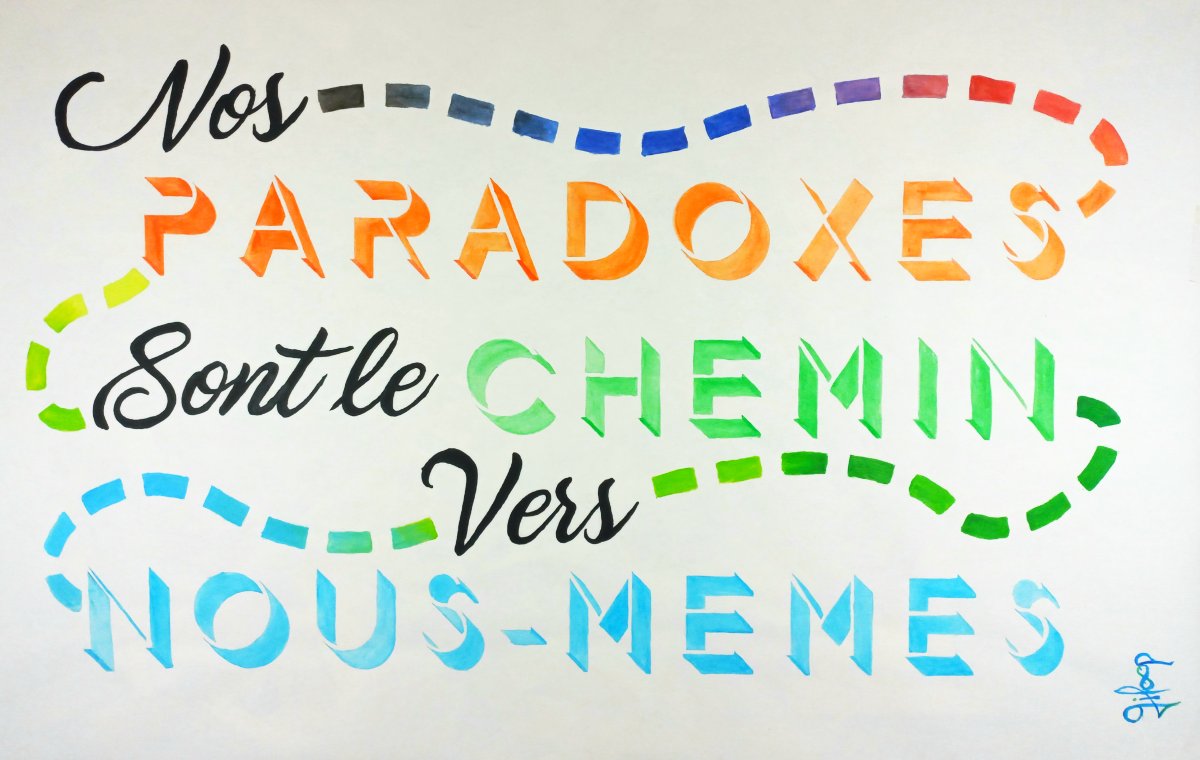 Nos
PARADOXES
Sont le CHEMIN
Vers
NOUS-MEMES